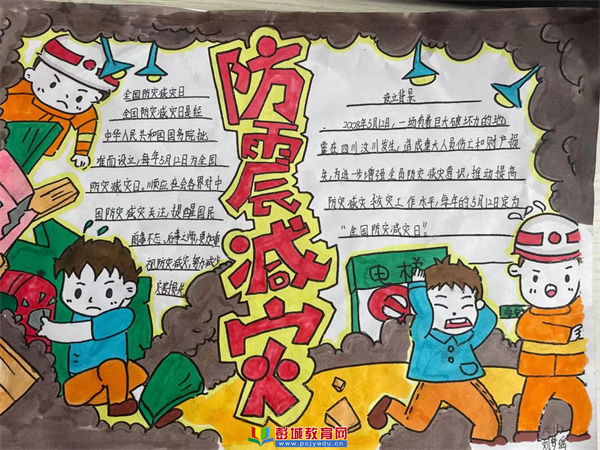 防震减灾
全国防灾减灾日
全国防灾减灾日是经
中华人民共和国国务院批
准而设立,每年5月12日为全国
防灾减灾日。顺应社会各界对中
国防灾减灾关注,提醒国民
前事不忘、后事之师,更加重
视防灾减灾,努力减少
灾害损失
设立背景
2008年5月12日,一场有着巨大破坏力的地
震在四川汶川发生,造成重大人员伤亡和财产损
失,为进一步增强全民防灾减灾意识,推动提高
防灾减灾救灾工作水平,每年的5月12日定为
“全国防灾减灾日”。
电梯
彭城教育网
www.pcjyedu.cn